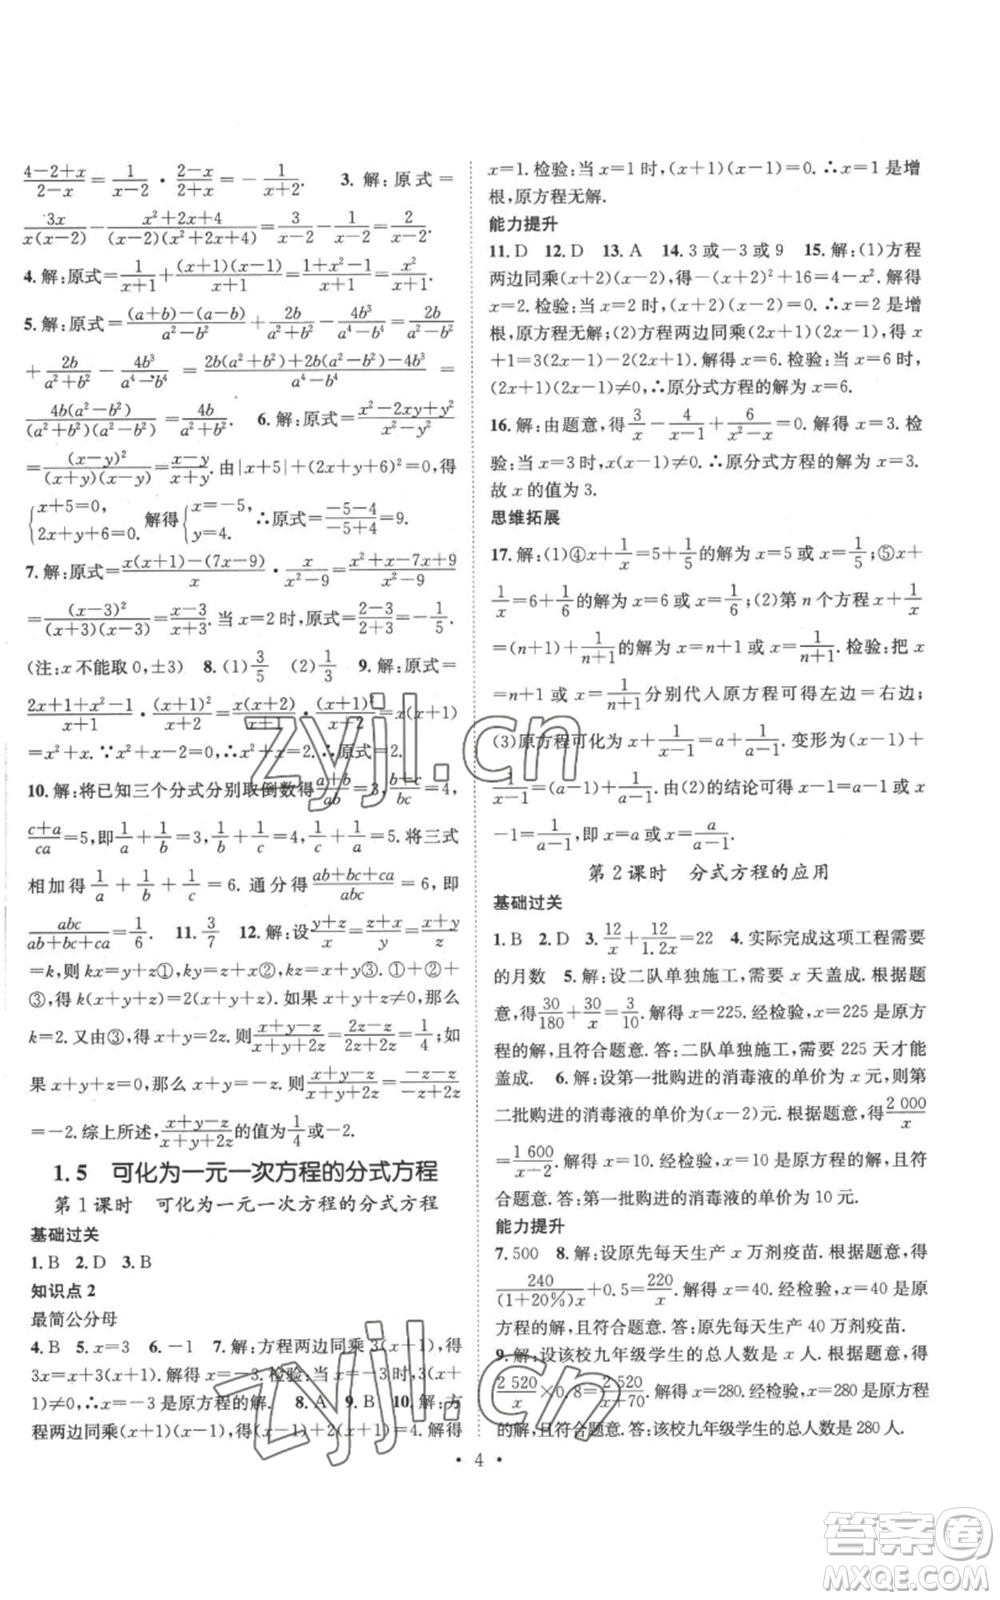 $\frac{4-2+x}{2-x}=\frac{1}{x-2}\cdot\frac{2-x}{2+x}=-\frac{1}{x+2}$. 3. 解:原式=
$\frac{3x}{x(x-2)}-\frac{x^2+2x+4}{(x-2)(x^2+2x+4)}=\frac{3}{x-2}-\frac{1}{x-2}=\frac{2}{x-2}$.
4. 解:原式=$\frac{1}{x+1}+\frac{(x+1)(x-1)}{x+1}=\frac{1+x^2-1}{x+1}=\frac{x^2}{x+1}$.
5. 解:原式=$\frac{(a+b)-(a-b)}{a^2-b^2}+\frac{2b}{a^2+b^2}-\frac{4b^3}{a^4-b^4}=\frac{2b}{a^2-b^2}$
$+\frac{2b}{a^2+b^2}-\frac{4b^3}{a^4-b^4}=\frac{2b(a^2+b^2)+2b(a^2-b^2)-4b^3}{a^4-b^4}=$
$\frac{4b(a^2-b^2)}{(a^2+b^2)(a^2-b^2)}=\frac{4b}{a^2+b^2}$. 6. 解:原式=$\frac{x^2-2xy+y^2}{x^2-y^2}$
$=\frac{(x-y)^2}{(x+y)(x-y)}=\frac{x-y}{x+y}$. 由|x+5|+(2x+y+6)²=0,得
$\begin{cases}x+5=0,\\2x+y+6=0.\end{cases}$解得$\begin{cases}x=-5,\\y=4.\end{cases}$∴原式=$\frac{-5-4}{-5+4}$=9.
7. 解:原式=$\frac{x(x+1)-(7x-9)}{x}\cdot\frac{x}{x^2-9}=\frac{x^2+x-7x+9}{x^2-9}$
$=\frac{(x-3)^2}{(x+3)(x-3)}=\frac{x-3}{x+3}$. 当 x=2 时,原式=$\frac{2-3}{2+3}=-\frac{1}{5}$.
(注:x 不能取 0,±3) 8. (1)$\frac{3}{5}$ (2)$\frac{1}{3}$ 9. 解:原式=
$\frac{2x+1+x^2-1}{x+1}\cdot\frac{(x+1)^2}{x+2}=\frac{x(x+2)}{x+1}\cdot\frac{(x+1)^2}{x+2}$=x(x+1)
=x²+x. ∵x²+x-2=0,∴x²+x=2. ∴原式=2.
10. 解:将已知三个分式分别取倒数得$\frac{a+b}{ab}$=3,$\frac{b+c}{bc}$=4,
$\frac{c+a}{ca}$=5,即$\frac{1}{a}+\frac{1}{b}$=3,$\frac{1}{b}+\frac{1}{c}$=4,$\frac{1}{c}+\frac{1}{a}$=5. 将三式
相加得$\frac{1}{a}+\frac{1}{b}+\frac{1}{c}$=6. 通分得$\frac{ab+bc+ca}{abc}$=6,即
$\frac{abc}{ab+bc+ca}=\frac{1}{6}$. 11. $\frac{3}{7}$ 12. 解:设$\frac{y+z}{x}=\frac{x+z}{y}=\frac{x+y}{z}$
=k,则 y+z=kx①,x+z=ky②,x+y=kz③,①+②+
③,得 k(x+y+z)=2(x+y+z). 如果 x+y+z≠0,那么
k=2. 又由③,得 x+y=2z. ∴$\frac{x+y-z}{x+y+2z}=\frac{2z-z}{2z+2z}=\frac{1}{4}$;如
果 x+y+z=0,那么 x+y=-z. ∴$\frac{x+y-z}{x+y+2z}=\frac{-z-z}{-z+2z}$
=-2. 综上所述,$\frac{x+y-z}{x+y+2z}$的值为$\frac{1}{4}$或-2.
1.5 可化为一元一次方程的分式方程
第 1 课时 可化为一元一次方程的分式方程
基础过关
1. B 2. D 3. B
知识点 2
最简公分母
4. B 5. x=3 6. -1 7. 解:方程两边同乘 3(x+1),得
3x=2x-3(x+1). 解得 x=- . 检验:当 x=- 时,3(x+
1)≠0,∴x=- 是原方程的解. 8. A 9. B 10. 解:方
程两边同乘(x+1)(x-1),得 2(x-1)+(x+1)=2. 解得
x=1. 检验:当 x=1 时,(x+1)(x-1)=0. ∴x=1 是增
根,原方程无解.
能力提升
11. D 12. D 13. A 14. 3 或-3 或 9 15. 解:(1)方程
两边同乘(x+2)(x-2),得-(x+2)²+16=4-x². 解得
x=2. 检验:当 x=2 时,(x+2)(x-2)=0. ∴x=2 是增
根,原方程无解;(2)方程两边同乘(2x+1)(2x-1),得 x
+1=3(2x-1)-2(2x+1). 解得 x=6. 检验:当 x=6 时,
(2x+1)(2x-1)≠0,∴原分式方程的解为 x=6.
16. 解:由题意,得$\frac{3}{x}-\frac{4}{x-1}+\frac{6}{x^2-x}$=0. 解得 x=3. 检
验:当 x=3 时,x(x-1)≠0. ∴原分式方程的解为 x=3.
故 x 的值为 3.
思维拓展
17. 解:(1)④x+$\frac{1}{x}$=5+$\frac{1}{5}$的解为 x=5 或 x=$\frac{1}{5}$;⑤x+
$\frac{1}{x}$=6+$\frac{1}{6}$的解为 x=6 或 x=$\frac{1}{6}$;(2)第 n 个方程 x+$\frac{1}{x}$
=(n+1)+$\frac{1}{n+1}$的解为 x=n+1 或 x=$\frac{1}{n+1}$. 检验:把 x
=n+1 或 x=$\frac{1}{n+1}$分别代入原方程可得左边=右边;
(3)原方程可化为 x+$\frac{1}{x-1}$=a+$\frac{1}{a-1}$. 变形为(x-1)+
$\frac{1}{x-1}$=(a-1)+$\frac{1}{a-1}$. 由(2)的结论可得 x-1=a-1 或 x
-1=$\frac{1}{a-1}$,即 x=a 或 x=$\frac{a}{a-1}$.
第 2 课时 分式方程的应用
基础过关
1. B 2. D 3. $\frac{12}{x}+\frac{12}{1.2x}$=22 4. 实际完成这项工程需要
的月数 5. 解:设二队单独施工,需要 x 天盖成. 根据题
意,得$\frac{30}{180}+\frac{30}{x}=\frac{3}{10}$. 解得 x=225. 经检验,x=225 是原方
程的解,且符合题意. 答:二队单独施工,需要 225 天才能
盖成. 6. 解:设第一批购进的消毒液的单价为 x 元,则第
二批购进的消毒液的单价为(x-2)元. 根据题意,得$\frac{2\ 000}{x}$
=$\frac{1\ 600}{x-2}$. 解得 x=10. 经检验,x=10 是原方程的解,且符
合题意. 答:第一批购进的消毒液的单价为 10 元.
能力提升
7. 500 8. 解:设原先每天生产 x 万剂疫苗. 根据题意,得
$\frac{240}{(1+20\%)x}$+0.5=$\frac{220}{x}$. 解得 x=40. 经检验,x=40 是原
方程的解,且符合题意. 答:原先每天生产 40 万剂疫苗.
9. 解:设该校九年级学生的总人数是 x 人. 根据题意,得
$\frac{2\ 520}{x}$×0.8=$\frac{2\ 520}{x+70}$. 解得 x=280. 经检验,x=280 是原方程
的解,且符合题意. 答:该校九年级学生的总人数是 280 人.
· 4 ·
zyjl.cn
zyjl.cn
答案圈
MXQE.COM